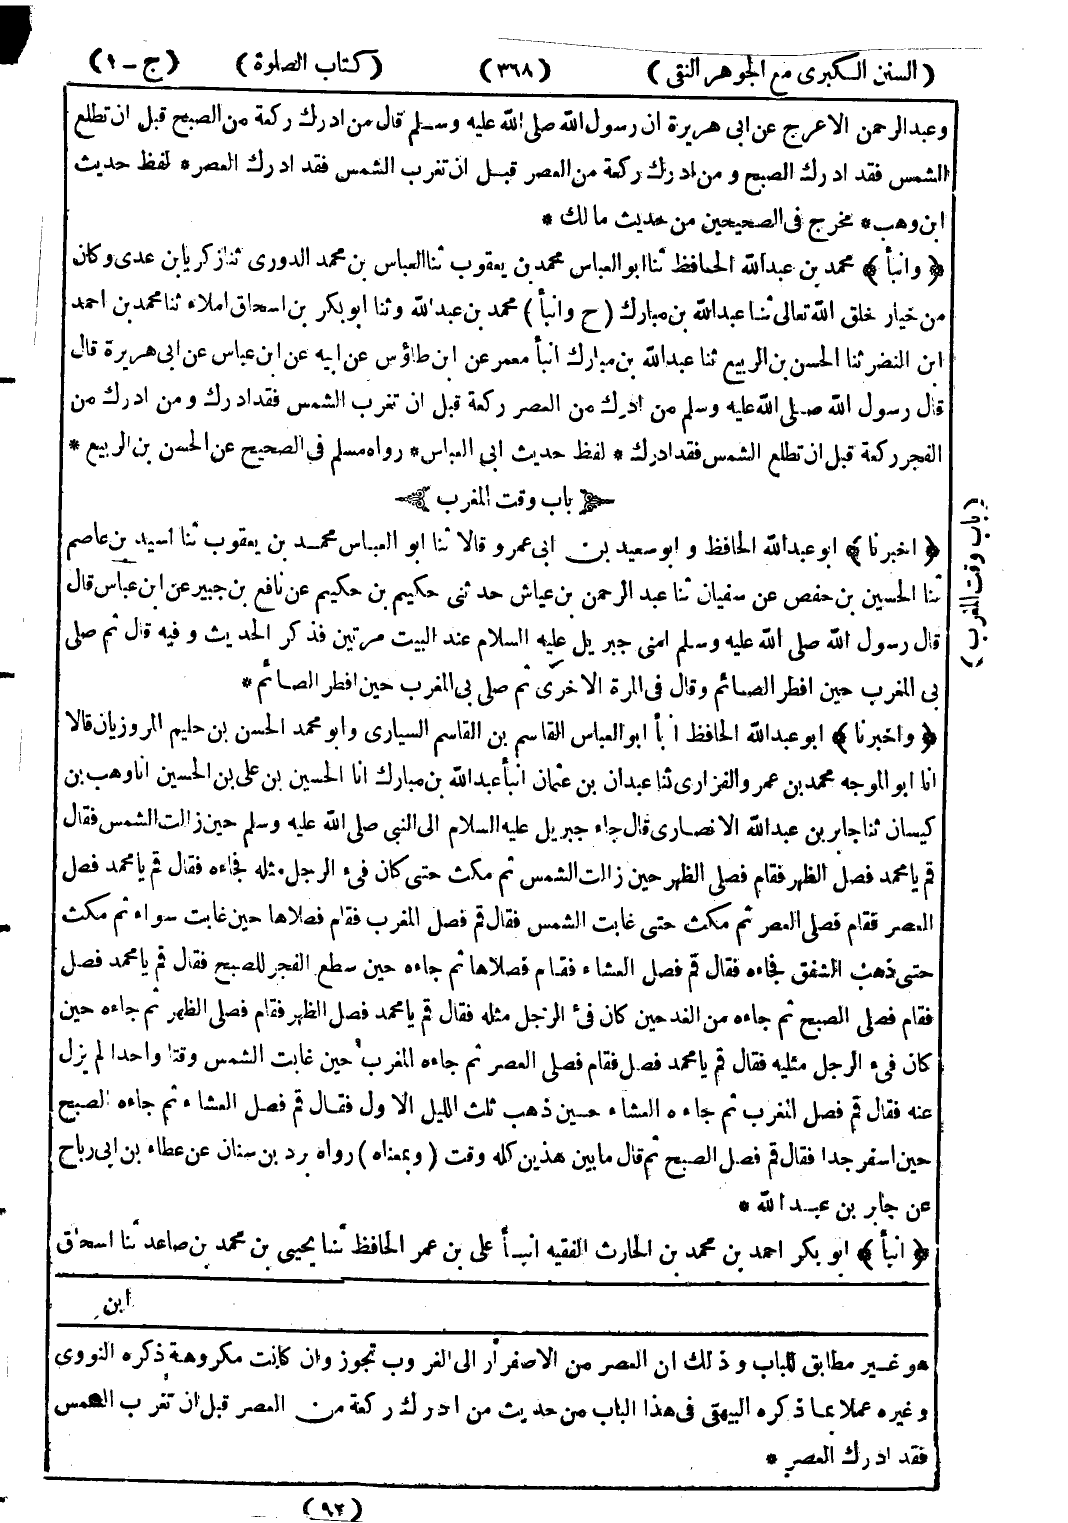 ( السنن الكبرى مع الجوهر النقى ) ( ٣٦٨ ) ( كتاب الصلوة ) ( ج - ١ )
وعبد الرحمن الاعرج عن ابى هريرة ان رسول الله صلى الله عليه وسلم قال من ادرك ركعة من الصبح قبل ان تطلع
الشمس فقد ادرك الصبح و من ادرك ركعة من العصر قبل ان تغرب الشمس فقد ادرك العصر * لفظ حديث
ابن وهب * مخرج فى الصحيحين من حديث مالك *
﴿ وانبأ ﴾ محمد بن عبد الله الحافظ ثنا ابو العباس محمد بن يعقوب ثنا العباس بن محمد الدورى ثنا زكريا بن عدى وكان
من خيار خلق الله تعالى ثنا عبد الله بن مبارك ( ح وانبأ ) محمد بن عبد الله وثنا ابو بكر بن اسحاق املاء ثنا محمد بن احمد
ابن النضر ثنا الحسن بن الربيع ثنا عبد الله بن مبارك انبأ معمر عن ابن طاؤس عن ابيه عن ابن عباس عن ابى هريرة قال
قال رسول الله صلى الله عليه وسلم من ادرك من العصر ركعة قبل ان تغرب الشمس فقد ادرك ومن ادرك من
الفجر ركعة قبل ان تطلع الشمس فقد ادرك * لفظ حديث ابى العباس * رواه مسلم فى الصحيح عن الحسن بن الربيع *
باب وقت المغرب
( باب وقت المغرب )
﴿ اخبرنا ﴾ ابو عبد الله الحافظ و ابو سعيد بن ابى عمرو قالا ثنا ابو العباس محمد بن يعقوب ثنا اسيد بن عاصم
ثنا الحسين بن حفص عن سفيان ثنا عبد الرحمن بن عياش حدثنى حكيم بن حكيم عن نافع بن جبير عن ابن عباس قال
قال رسول الله صلى الله عليه وسلم امنى جبريل عليه السلام عند البيت مرتين فذكر الحديث وفيه قال ثم صلى
بى المغرب حين افطر الصائم وقال فى المرة الاخرى ثم صلى بى المغرب حين افطر الصائم *
﴿ واخبرنا ﴾ ابو عبد الله الحافظ انبأ ابو العباس القاسم بن القاسم السيارى وابو محمد الحسن بن حليم المروزيان قالا
انا ابو الموجه محمد بن عمرو الفزارى ثنا عبدان بن عثمان انبأ عبد الله بن مبارك انا الحسين بن على بن الحسين انا وهب بن
كيسان ثنا جابر بن عبد الله الانصارى قال جاء جبريل عليه السلام الى النبى صلى الله عليه وسلم حين زالت الشمس فقال
قم يا محمد فصل الظهر فقام فصلى الظهر حين زالت الشمس ثم مكث حتى كان فىء الرجل مثله فجاءه فقال قم يا محمد فصل
العصر فقام فصلى العصر ثم مكث حتى غابت الشمس فقال قم فصل المغرب فقام فصلاها حين غابت سواء ثم مكث
حتى ذهب الشفق فجاءه فقال قم فصل العشاء فقام فصلاها ثم جاءه حين سطع الفجر للصبح فقال قم يا محمد فصل
فقام فصلى الصبح ثم جاءه من الغد حين كان فىء الرجل مثله فقال قم يا محمد فصل الظهر فقام فصلى الظهر ثم جاءه حين
كان فىء الرجل مثليه فقال قم يا محمد فصل فقام فصلى العصر ثم جاءه المغرب حين غابت الشمس وقتا واحدا لم يزل
عنه فقال قم فصل المغرب ثم جاءه العشاء حين ذهب ثلث الليل الاول فقال قم فصل العشاء ثم جاءه الصبح
حين اسفر جدا فقال قم فصل الصبح ثم قال ما بين هذين كله وقت ( وبمعناه ) رواه برد بن سنان عن عطاء بن ابى رباح
عن جابر بن عبد الله *
﴿ انبأ ﴾ ابو بكر احمد بن محمد بن الحارث الفقيه انبأ على بن عمر الحافظ ثنا يحيى بن محمد بن صاعد ثنا اسحاق
ابن
هو غير مطابق للباب وذلك ان العصر من الاصفرار الى الغروب تجوز وان كانت مكروهة ذكره النووى
وغيره عملا بما ذكره البيهقى فى هذا الباب من حديث من ادرك ركعة من العصر قبل ان تغرب الشمس
فقد ادرك العصر *
( ٩٢ )